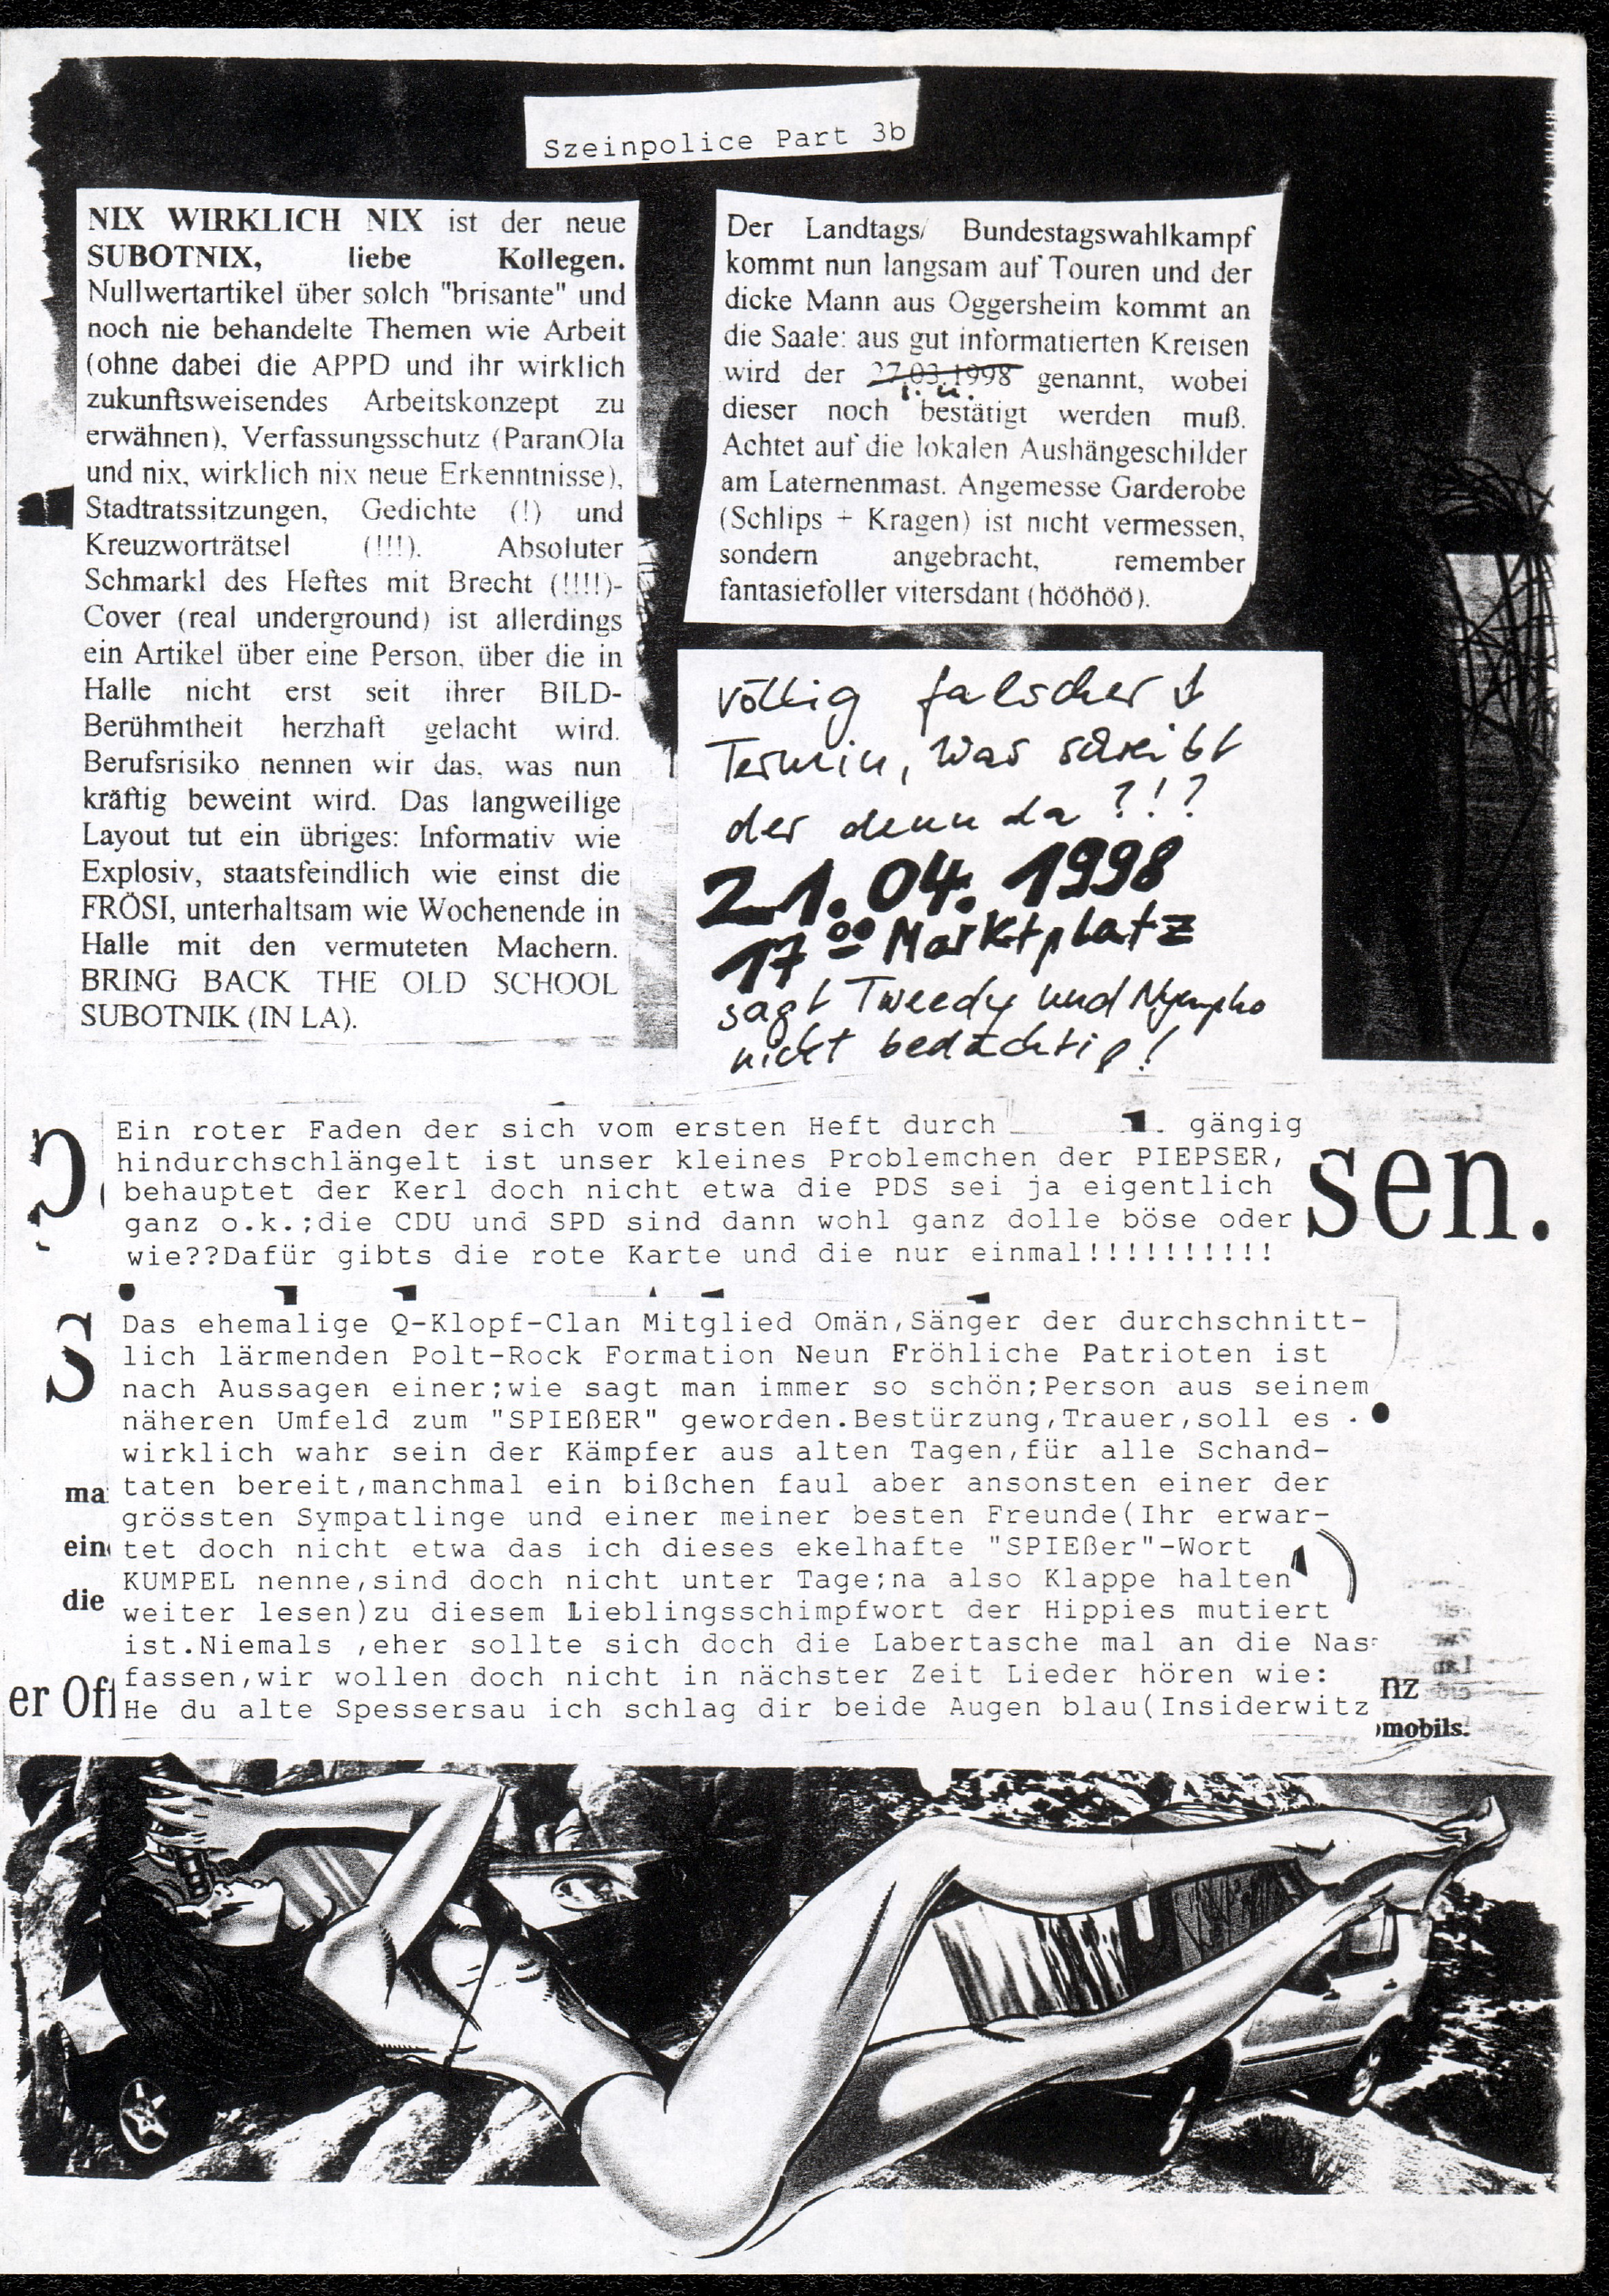 Szeinpolice Part 3b
NIX WIRKLICH NIX ist der neue
SUBOTNIX, liebe Kollegen.
Nullwertartikel über solch "brisante" und
noch nie behandelte Themen wie Arbeit
(ohne dabei die APPD und ihr wirklich
zukunftsweisendes Arbeitskonzept zu
erwähnen), Verfassungsschutz (ParanOIa
und nix, wirklich nix neue Erkenntnisse),
Stadtratssitzungen, Gedichte (!) und
Kreuzworträtsel (!!!). Absoluter
Schmarkl des Heftes mit Brecht (!!!!)-
Cover (real underground) ist allerdings
ein Artikel über eine Person, über die in
Halle nicht erst seit ihrer BILD-
Berühmtheit herzhaft gelacht wird.
Berufsrisiko nennen wir das, was nun
kräftig beweint wird. Das langweilige
Layout tut ein übriges: Informativ wie
Explosiv, staatsfeindlich wie einst die
FRÖSI, unterhaltsam wie Wochenende in
Halle mit den vermuteten Machern.
BRING BACK THE OLD SCHOOL
SUBOTNIK (IN LA).
Der Landtags/ Bundestagswahlkampf
kommt nun langsam auf Touren und der
dicke Mann aus Oggersheim kommt an
die Saale: aus gut informatierten Kreisen
wird der 27.03.1998 genannt, wobei
s. u.
dieser noch bestätigt werden muß.
Achtet auf die lokalen Aushängeschilder
am Laternenmast. Angemesse Garderobe
(Schlips + Kragen) ist nicht vermessen,
sondern angebracht, remember
fantasiefoller vitersdant (hööhöö).
völlig falscher
Termin, was schreibt
der denn da ?!?
21.04.1998
17 00 Marktplatz
sagt Tweedy und Nympho
nicht bedächtig!
Ein roter Faden der sich vom ersten Heft durch gängig
hindurchschlängelt ist unser kleines Problemchen der PIEPSER,
behauptet der Kerl doch nicht etwa die PDS sei ja eigentlich
ganz o.k.;die CDU und SPD sind dann wohl ganz dolle böse oder
wie??Dafür gibts die rote Karte und die nur einmal!!!!!!!!!!
sen.
Das ehemalige Q-Klopf-Clan Mitglied Omän,Sänger der durchschnitt-
lich lärmenden Polt-Rock Formation Neun Fröhliche Patrioten ist
nach Aussagen einer;wie sagt man immer so schön;Person aus seinem
näheren Umfeld zum "SPIEßER" geworden.Bestürzung,Trauer,soll es
wirklich wahr sein der Kämpfer aus alten Tagen,für alle Schand-
taten bereit,manchmal ein bißchen faul aber ansonsten einer der
grössten Sympatlinge und einer meiner besten Freunde(Ihr erwar-
tet doch nicht etwa das ich dieses ekelhafte "SPIEßer"-Wort
KUMPEL nenne,sind doch nicht unter Tage;na also Klappe halten
weiter lesen)zu diesem Lieblingsschimpfwort der Hippies mutiert
ist.Niemals ,eher sollte sich doch die Labertasche mal an die Nas
fassen,wir wollen doch nicht in nächster Zeit Lieder hören wie:
He du alte Spessersau ich schlag dir beide Augen blau(Insiderwitz
S
ma
ein
die
er Off
nz
mobils.